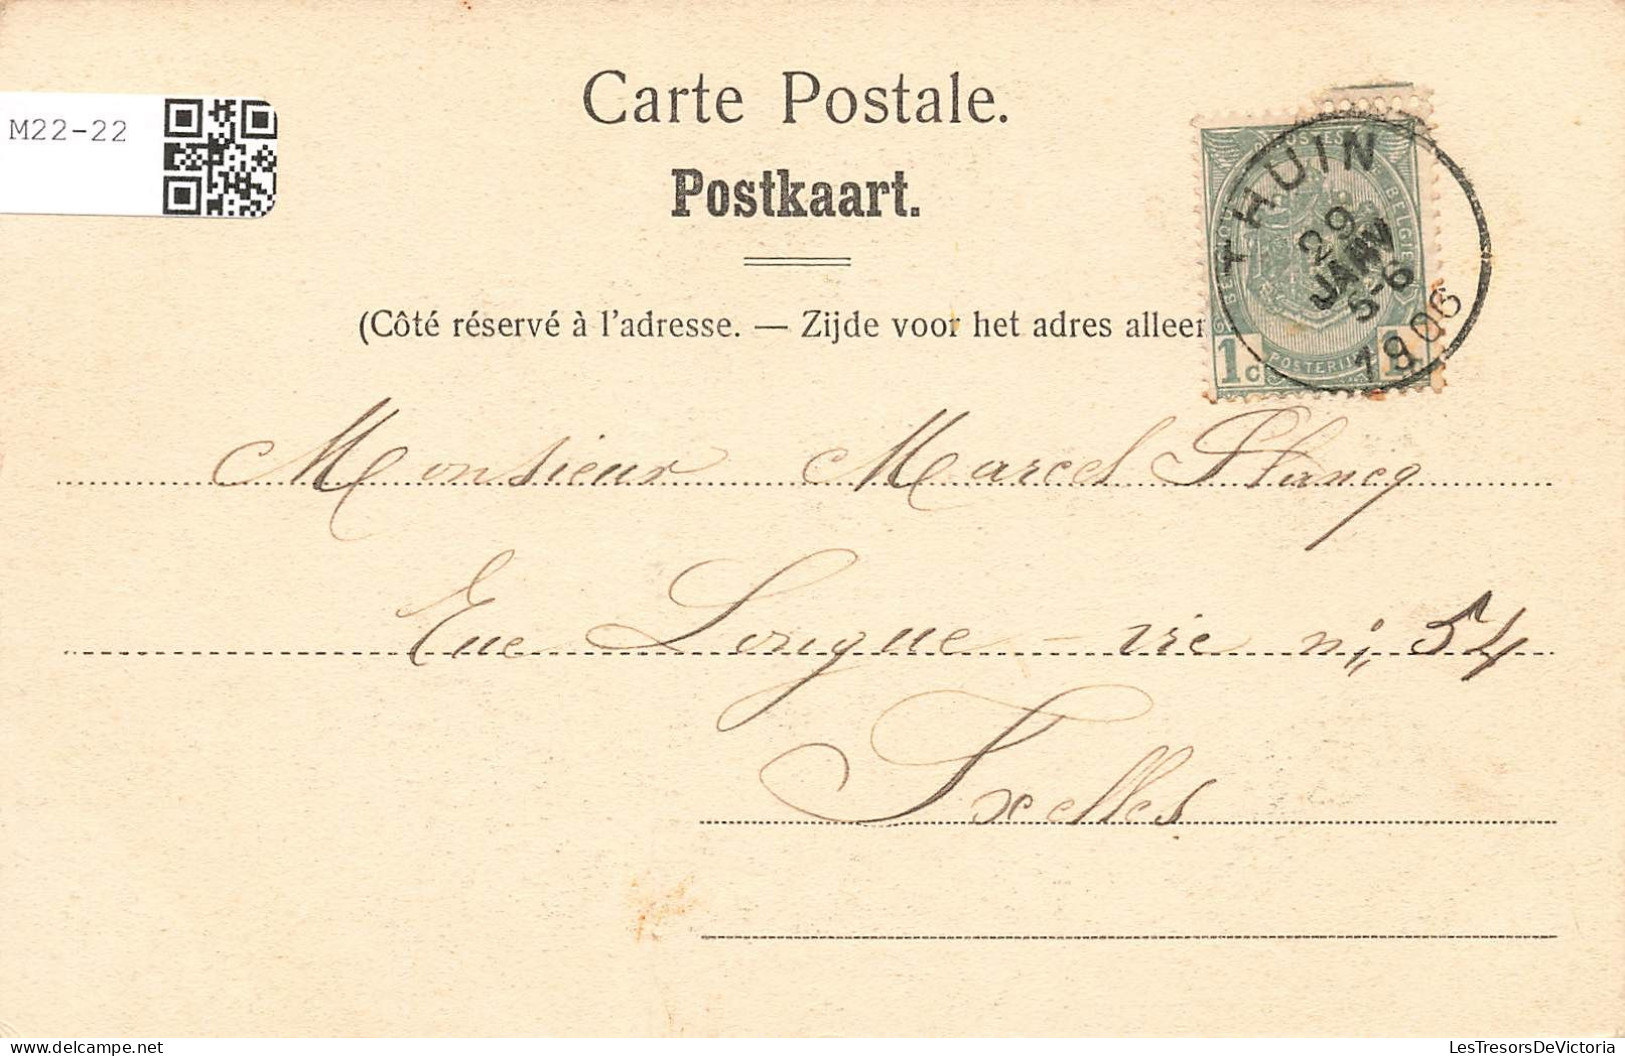 Carte Postale.
M22-22
Postkaart.
(Côté réservé à l'adresse. — Zijde voor het adres alleen
THUIN
29
JANV
5-6
1906
BELGIE
1c
POSTERIJEN
1
Monsieur Marcel Plancq
Rue Longue-vie n° 54
Ixelles
LesTresorsDeVictoria